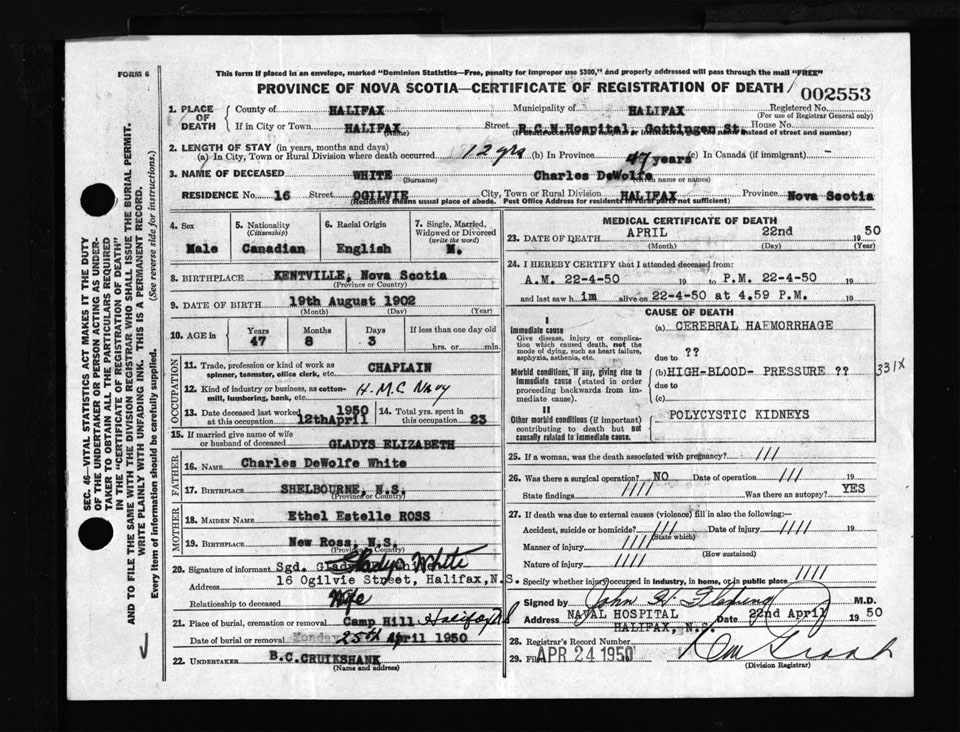 FORM 6
This form if placed in an envelope, marked "Dominion Statistics—Free, penalty for improper use $300," and properly addressed will pass through the mail "FREE"
PROVINCE OF NOVA SCOTIA—CERTIFICATE OF REGISTRATION OF DEATH/ 002553
1. PLACE OF DEATH
County of HALIFAX Municipality of HALIFAX Registered No.
(For use of Registrar General only)
If in City or Town HALIFAX Street R.C.N.Hospital, Gottingen St. House No.
(Name) instead of street and number)
2. LENGTH OF STAY (in years, months and days)
(a) In City, Town or Rural Division where death occurred 12 yrs (b) In Province 47 years (c) In Canada (if immigrant) –
3. NAME OF DECEASED WHITE Charles DeWolfe
(Surname) (Given name or names)
RESIDENCE No. 16 Street OGILVIE City, Town or Rural Division HALIFAX Province Nova Scotia
(Residence means usual place of abode. Post Office Address for residents in rural parts not sufficient)
4. Sex
Male
5. Nationality
(Citizenship)
Canadian
6. Racial Origin
English
7. Single, Married, Widowed or Divorced
(write the word)
M.
8. BIRTHPLACE KENTVILLE, Nova Scotia
(Province or Country)
9. DATE OF BIRTH 19th August 1902
(Month) (Day) (Year)
10. AGE in
Years Months Days If less than one day old
47 8 3 hrs. or min.
OCCUPATION
11. Trade, profession or kind of work as spinner, teamster, office clerk, etc. CHAPLAIN
12. Kind of industry or business, as cotton-mill, lumbering, bank, etc. H.M.C. Navy
13. Date deceased last worked at this occupation 12th April 1950
14. Total yrs. spent in this occupation 23
15. If married give name of wife or husband of deceased GLADYS ELIZABETH
FATHER
16. NAME Charles DeWolfe White
17. BIRTHPLACE SHELBOURNE, N.S.
(Province or Country)
MOTHER
18. MAIDEN NAME Ethel Estelle ROSS
19. BIRTHPLACE New Ross, N.S.
(Province or Country)
20. Signature of informant Sgd. Gladys White
Address 16 Ogilvie Street, Halifax, N.S.
Relationship to deceased Wife
21. Place of burial, cremation or removal Camp Hill Halifax NS
Date of burial or removal Monday 25th April 1950
22. UNDERTAKER B.C.CRUIKSHANK
(Name and address)
MEDICAL CERTIFICATE OF DEATH
23. DATE OF DEATH APRIL 22nd 1950
(Month) (Day) (Year)
24. I HEREBY CERTIFY that I attended deceased from:
A.M. 22-4-50 19 to P.M. 22-4-50 19
and last saw h im alive on 22-4-50 at 4.59 P.M. 19
CAUSE OF DEATH
I
Immediate cause
Give disease, injury or complication which caused death, not the mode of dying, such as heart failure, asphyxia, asthenia, etc.
(a) CEREBRAL HAEMORRHAGE
due to ??
Morbid conditions, if any, giving rise to immediate cause (stated in order proceeding backwards from immediate cause).
(b) HIGH-BLOOD- PRESSURE ?? 331X
due to
(c)
II
Other morbid conditions (if important) contributing to death but not causally related to immediate cause.
POLYCYSTIC KIDNEYS
25. If a woman, was the death associated with pregnancy? ///
26. Was there a surgical operation? NO Date of operation /// 19
State findings //// Was there an autopsy? YES
27. If death was due to external causes (violence) fill in also the following:—
Accident, suicide or homicide? /// Date of injury //// 19
(State which)
Manner of injury ////
(How sustained)
Nature of injury ////
Specify whether injury occurred in industry, in home, or in public place ////
Signed by John H. M.D.
Address NAVAL HOSPITAL 22nd April 1950
HALIFAX, N.S.
28. Registrar's Record Number
29. Filed APR 24 1950
(Division Registrar)
SEC. 46—VITAL STATISTICS ACT MAKES IT THE DUTY OF THE UNDERTAKER OR PERSON ACTING AS UNDERTAKER TO OBTAIN ALL THE PARTICULARS REQUIRED IN THE "CERTIFICATE OF REGISTRATION OF DEATH" AND TO FILE THE SAME WITH THE DIVISION REGISTRAR WHO SHALL ISSUE THE BURIAL PERMIT.
WRITE PLAINLY WITH UNFADING INK. THIS IS A PERMANENT RECORD.
Every item of information should be carefully supplied. (See reverse side for instructions.)